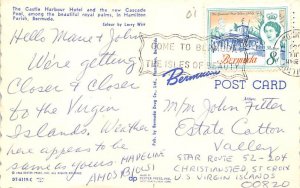 The Castle Harbour Hotel and the new Cascade
Pool, among the beautiful royal palms, in Hamilton
Parish, Bermuda.
Colour by Larry Witt
Hello Marie & John
We're getting
Closer & Closer
to the Virgin
Islands. Weather
here appears to be
same as yours
MADELINE
AMOS
COME TO BERMUDA
THE ISLES OF BEAUTY
Bermuda
8d
Bermuda
POST CARD
Mr/Mrs John Fetter
Estate Catton
Valley
STAR ROUTE 52-204
CHRISTIANSTED, ST CROIX
U.S. VIRGIN ISLANDS
00820